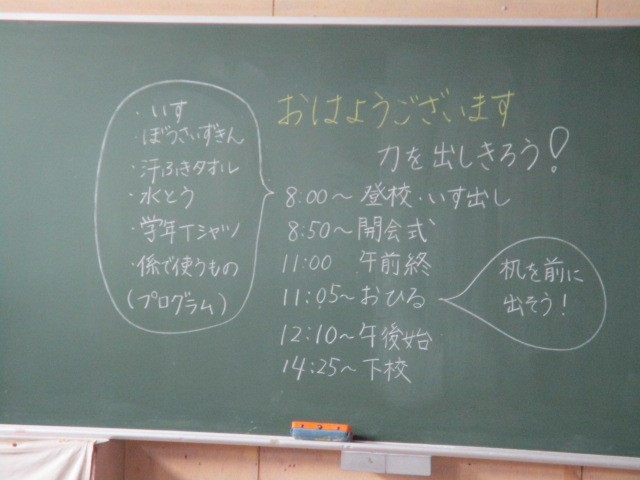 おはようございます
力を出しきろう!
・いす
・ぼうさいずきん
・汗ふきタオル
・水とう
・学年Tシャツ
・係で使うもの
(プログラム)
8:00〜登校・いす出し
8:50〜開会式
11:00 午前終
11:05〜おひる
12:10〜午後始
14:25〜下校
机を前に
出そう!